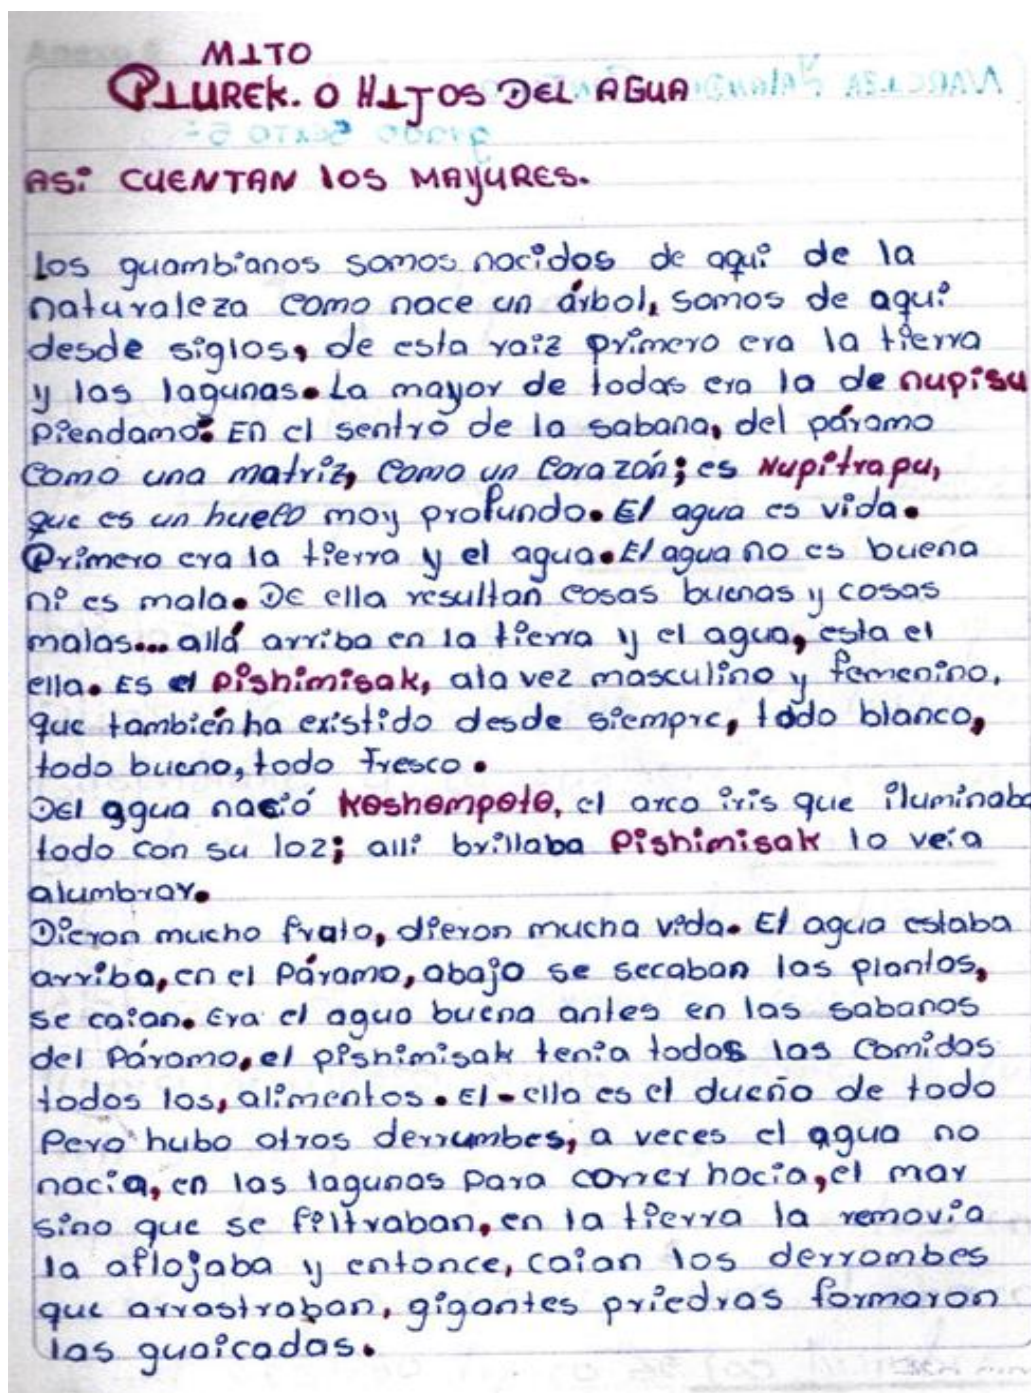 MITO
PIUREK. O HIJOS DEL AGUA
ASi CUENTAN los MAYURES.
Los guambianos somos nacidos de aqui de la
naturaleza como nace un árbol, somos de aqui
desde siglos, de esta raiz primero era la tierra
y las lagunas. La mayor de todas era la de nupisu
Piendamo: En el sentro de la sabana, del páramo
Como una matriz, Como un Corazón; es Nupitrapu,
que es un hueco moy profundo. El agua es vida.
Primero era la tierra y el agua. El agua no es buena
ni es mala. De ella resultan cosas buenas y cosas
malas... allá arriba en la tierra y el agua, esta el
ella. Es el Pishimisak, ala vez masculino y femenino,
que también ha existido desde siempre, todo blanco,
todo bueno, todo fresco.
Del agua nació Koshompoto, el arco iris que iluminaba
todo con su loz; alli brillaba Pishimisak lo veia
alumbrar.
Dieron mucho fruto, dieron mucha vida. El agua estaba
arriba, en el Páramo, abajo se secaban las plantas,
se caian. Era el agua buena antes en las sabanas
del Páramo, el pishimisak tenia todas las Comidas
todos los, alimentos. El-ella es el dueño de todo
Pero hubo otros derrumbes, a veces el agua no
nacia, en las lagunas para correr hacia, el mar
sino que se filtraban, en la tierra la removia
la aflojaba y entonce, caian los derrombes
que arrastraban, gigantes priedras formaron
las guaicadas.